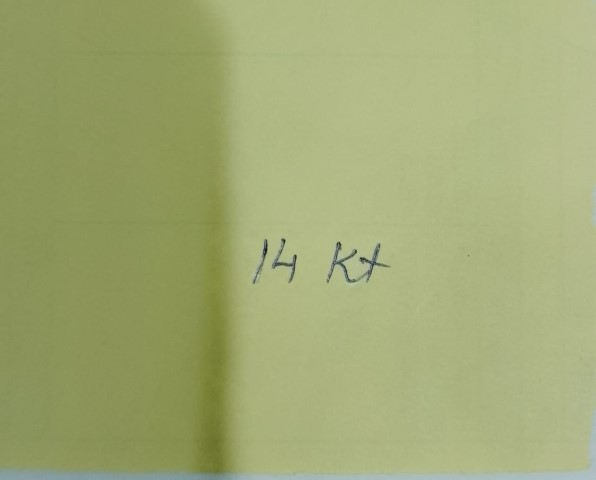 14 Kt